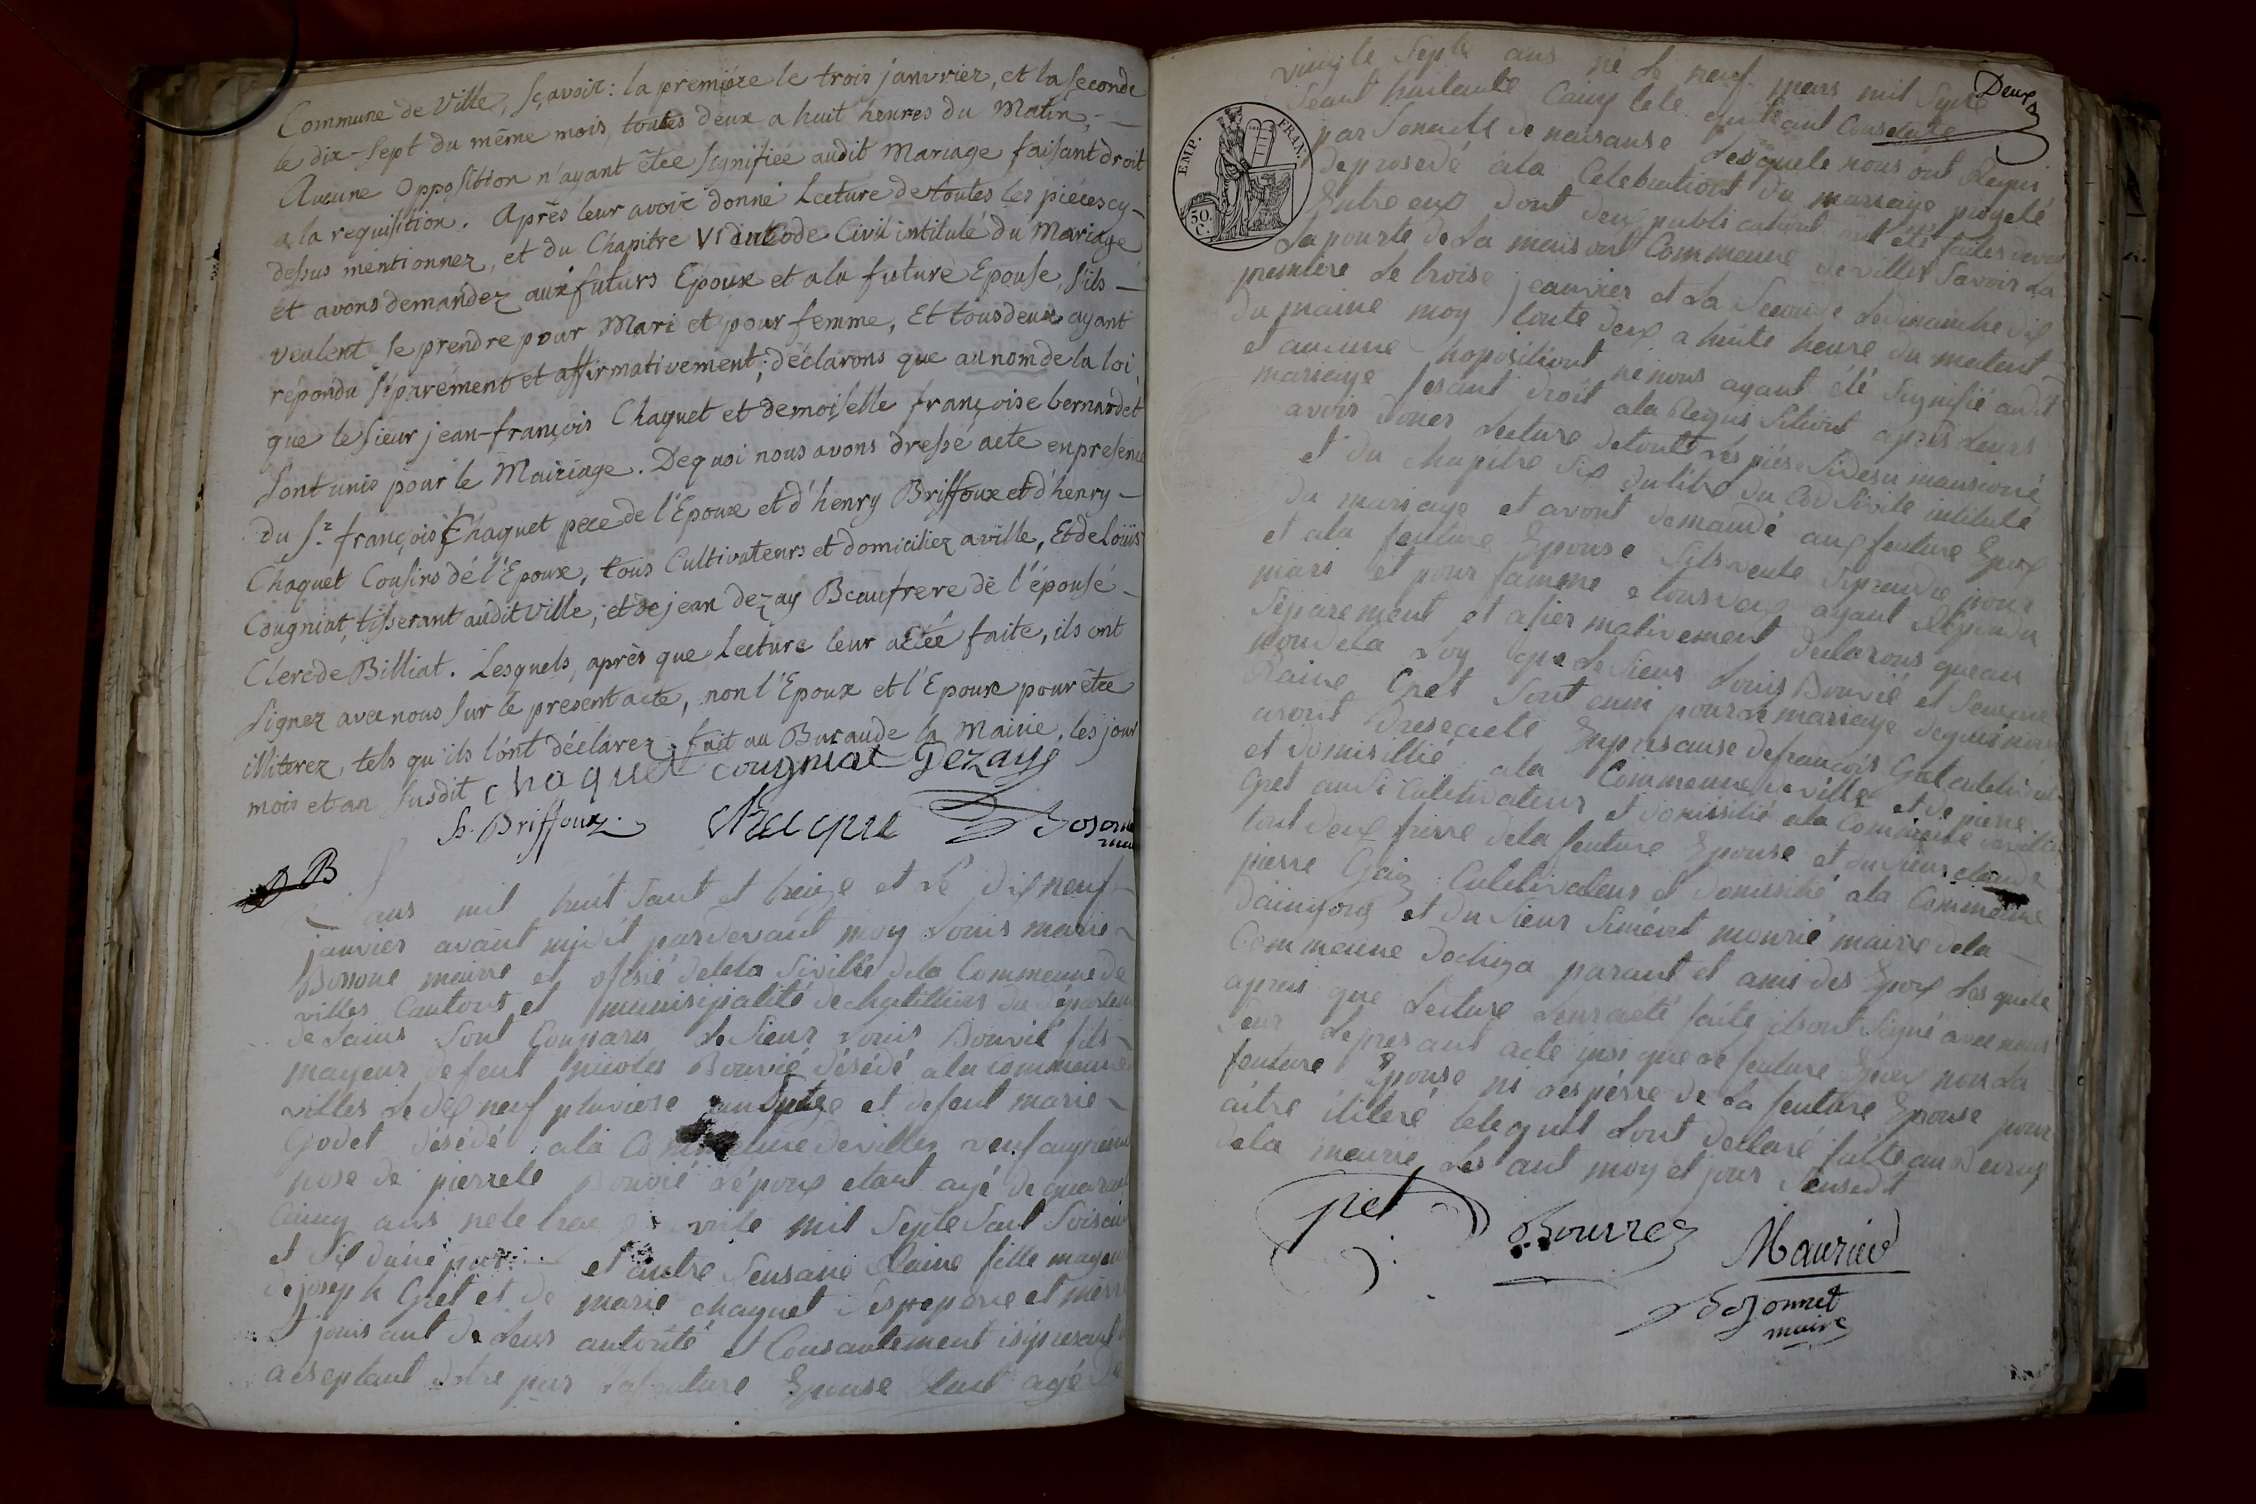 Commune de Ville, sçavoir: la première le trois janvrier, et la seconde
le dix-sept du même mois, toutes deux a huit heures du Matin,
Aucune Opposition n'ayant êtée signifiée audit Mariage faisant droit
a la requisition. Après leur avoir donné Lecture de toutes les piéces cy-
dessus mentionnez, et du Chapitre VI du Code Civil intitulé du Mariage
et avons demandez aux futurs Epoux et a la future Epouse, s'ils
veulent se prendre pour Mari et pour femme, Et tous deux ayant
répondu séparément et affirmativement; déclarons que au nom de la loi
que le sieur jean-françois Chaquet et demoiselle françoise bernardet
sont unis pour le Mairiage. De quoi nous avons dressé acte en presence
du Sr. françois Chaquet pere de l'Epoux et d'henry Briffoux et d'henry
Chaquet Cousins de l'Epoux, tous Cultivateurs et domiciliez a ville, Et de Loüis
Cougniat, tisserant audit ville, et de jean dezay Beaufrere de l'épousé
Clerc de Billiat. Lesquels, après que Lecture leur a Etée faite, ils ont
signez avec nous sur le present acte, non l'Epoux et l'Epoux pour être
illiterez, tels qu'ils l'ont déclarez. fait au Bureau de la Mairie, les jour
mois et an susdit chaquet cougniat Dezay
h. Briffoux
maire
B
ans mil huit sant et treize et le dix neuf
janvier avant midit pardevant moy Louis marie
Bossone maire et ofisié de léta sivilles de la Commeune de
villes Cantont et munisipalité de chatillions du département
de Lains sont Comparus le sieur Louis Bouvié fils
mayeur de feut nicolas Bouvié désédé a la commeune
villes le dix neuf pluviose et defeut marie
Godet désédé a la Commeune devilles veuf
de pierrete Bouvié l'époux etant agé de quarante
Cainq ans mil septe sant soisante
et sis d'une part et autre Sensane Claine fille mayeur
de joseph Gret et de marie chaquet ses pere et mère
jouisant de leurs autorité et Consantement isy presant
acseptant par la feuture Epouse Etant agé de
Deux
EMP. FRAN.
50. C.
vuingte septe ans né le neuf mars mil septe
seant huitante Cainq
par de naisanse lesquele nous ont Requi
de prosedé a la Celebrationt du marseage progeté
Entre eux dont deux publicationt ont été faites devant
la pourte de la maisont Commeune de villes savoir la
première le troise jeanvier et la seconde le dimanche dix
du maime moy toute deux a huite heure du matent
et aucune hopositiont ne nous ayant été signifié audit
marieage fesant droit a la Requisitiont après leurs
avoir doner lecture de toute les piése sidesu mansioné
et du chapitre six du titre du Cod Sivile intitulé
du marieage et avont demandé aux feuture Epox
et a la feuture Epouse sils veule seprendre pour
mari et pour famme e tous deux ayant Répondu
séparement et afiermativement declarons que au
nom de la Loy que le sieur Louis Bouvié et Sensane
Claine Gret sont euni pour le marieage dequoi nous
avont Dresé acte Empresanse de françois Gret cultivateur
et domisillié a la Commeune de villes et de pierre
Gret ausi Cultivateur et domisilié a la Commeune de villes
tout deux frerre de la feuture Epouse et du sieur claude
pierre Cultivateur et domisilié a la Commeune
et du sieur Siméont mourié maire de la
Commeune dochiaz parant et amis des Epox lesquele
apres que lecture leur a été faite ils ont signé avec nous
seur le presant acte insi que le feuture Epox non la
feuture Epouse ni les pérre de la feuture Epouse pour
aitre iliteré telequil lont declaré faite au Beurau
de la meurie les ant moy et jour seusedit
gret Bouvrez Maurier
maire